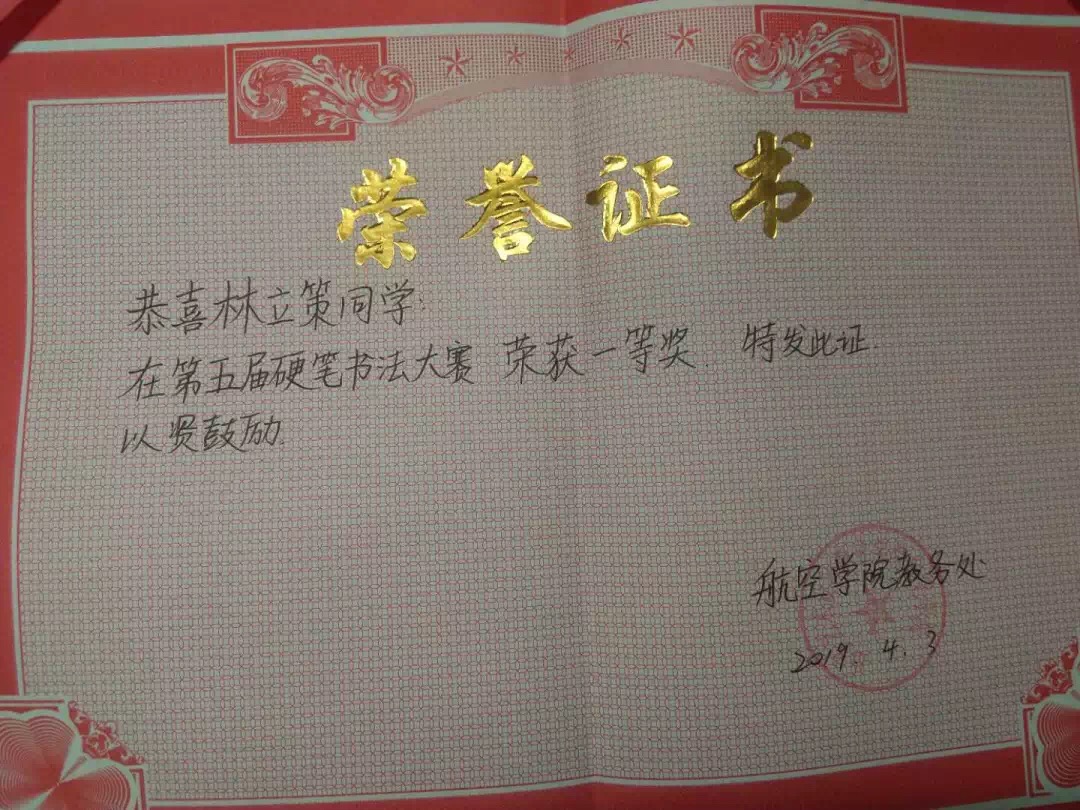 荣誉证书
恭喜林立策同学:
在第五届硬笔书法大赛 荣获一等奖. 特发此证.
以贤鼓励.
航空学院教务处
2019.4.3